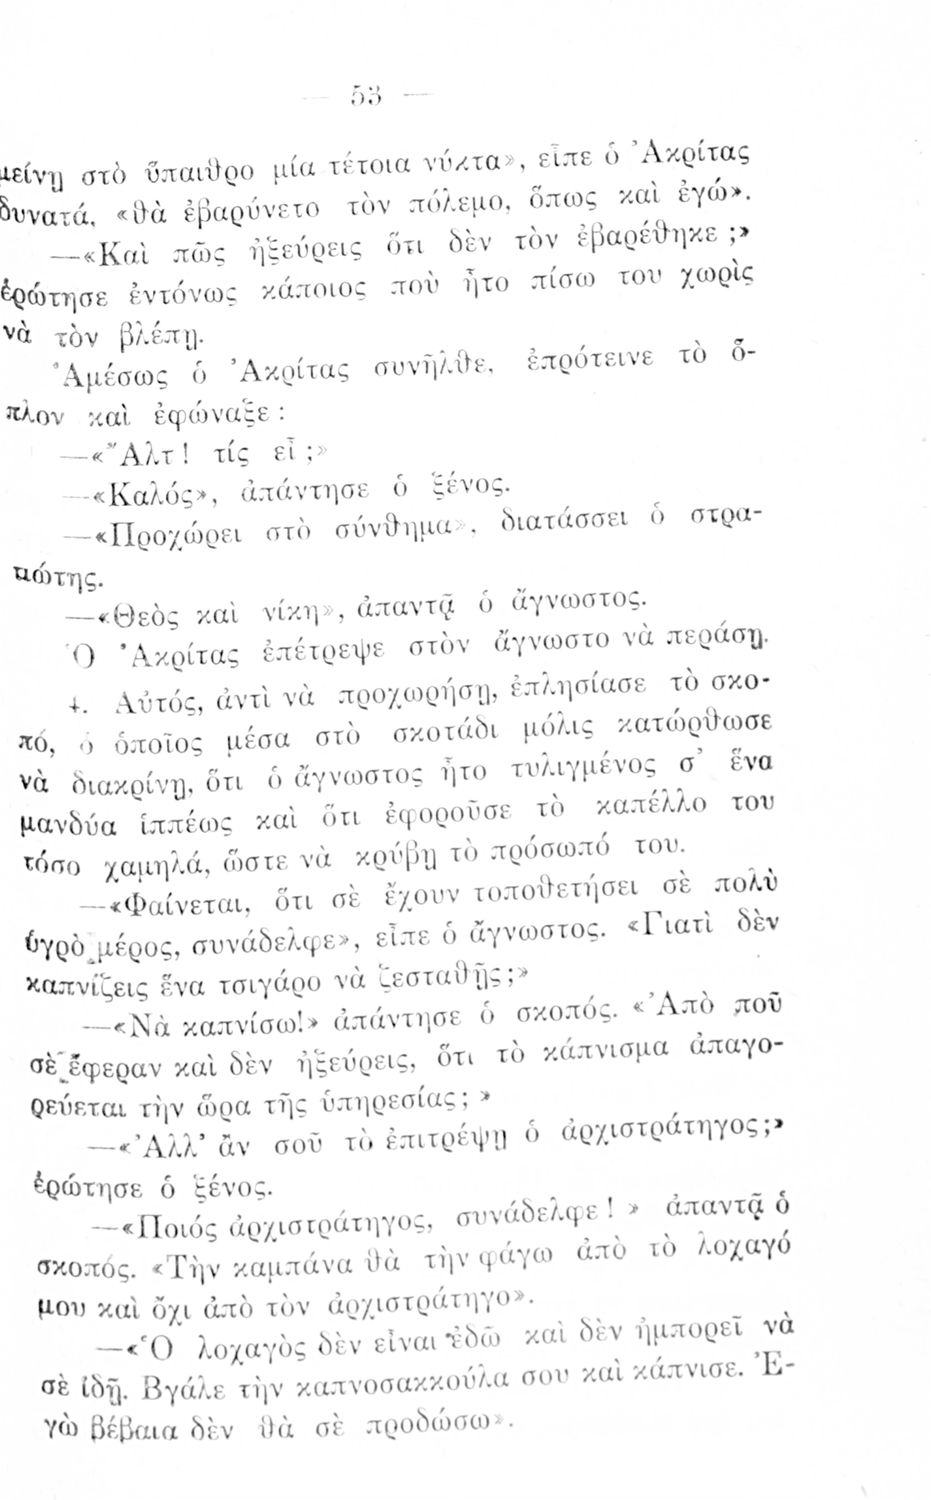 — 53 —
μείνῃ στὸ ὕπαιθρο μία τέτοια νύκτα», εἶπε ὁ Ἀκρίτας
δυνατά, «θὰ ἐβαρύνετο τὸν πόλεμο, ὅπως καὶ ἐγώ».
—«Καὶ πῶς ἠξεύρεις ὅτι δὲν τὸν ἐβαρέθηκε ;»
ἐρώτησε ἐντόνως κάποιος ποὺ ἦτο πίσω του χωρὶς
νὰ τὸν βλέπῃ.
Ἀμέσως ὁ Ἀκρίτας συνῆλθε, ἐπρότεινε τὸ ὅ-
πλον καὶ ἐφώναξε :
—«Ἄλτ! τίς εἶ ;»
—«Καλός», ἀπάντησε ὁ ξένος.
—«Προχώρει στὸ σύνθημα», διατάσσει ὁ στρα-
τιώτης.
—«Θεὸς καὶ νίκη», ἀπαντᾷ ὁ ἄγνωστος.
Ὁ Ἀκρίτας ἐπέτρεψε στὸν ἄγνωστο νὰ περάσῃ.
4. Αὐτός, ἀντὶ νὰ προχωρήσῃ, ἐπλησίασε τὸ σκο-
πό, ὁ ὁποῖος μέσα στὸ σκοτάδι μόλις κατώρθωσε
νὰ διακρίνῃ, ὅτι ὁ ἄγνωστος ἦτο τυλιγμένος σ’ ἕνα
μανδύα ἱππέως καὶ ὅτι ἐφοροῦσε τὸ καπέλλο του
τόσο χαμηλά, ὥστε νὰ κρύβῃ τὸ πρόσωπό του.
—«Φαίνεται, ὅτι σὲ ἔχουν τοποθετήσει σὲ πολὺ
ὑγρὸ μέρος, συνάδελφε», εἶπε ὁ ἄγνωστος. «Γιατὶ δὲν
καπνίζεις ἕνα τσιγάρο νὰ ζεσταθῇς;»
—«Νὰ καπνίσω!» ἀπάντησε ὁ σκοπός. «Ἀπὸ ποῦ
σὲ ἔφεραν καὶ δὲν ἠξεύρεις, ὅτι τὸ κάπνισμα ἀπαγο-
ρεύεται τὴν ὥρα τῆς ὑπηρεσίας; »
—«Ἀλλ’ ἂν σοῦ τὸ ἐπιτρέψῃ ὁ ἀρχιστράτηγος;»
ἐρώτησε ὁ ξένος.
—«Ποιός ἀρχιστράτηγος, συνάδελφε! » ἀπαντᾷ ὁ
σκοπός. «Τὴν καμπάνα θὰ τὴν φάγω ἀπὸ τὸ λοχαγό
μου καὶ ὄχι ἀπὸ τὸν ἀρχιστράτηγο».
—«Ὁ λοχαγὸς δὲν εἶναι ἐδῶ καὶ δὲν ἠμπορεῖ νὰ
σὲ ἰδῇ. Βγάλε τὴν καπνοσακκούλα σου καὶ κάπνισε. Ἐ-
γὼ βέβαια δὲν θὰ σὲ προδώσω».